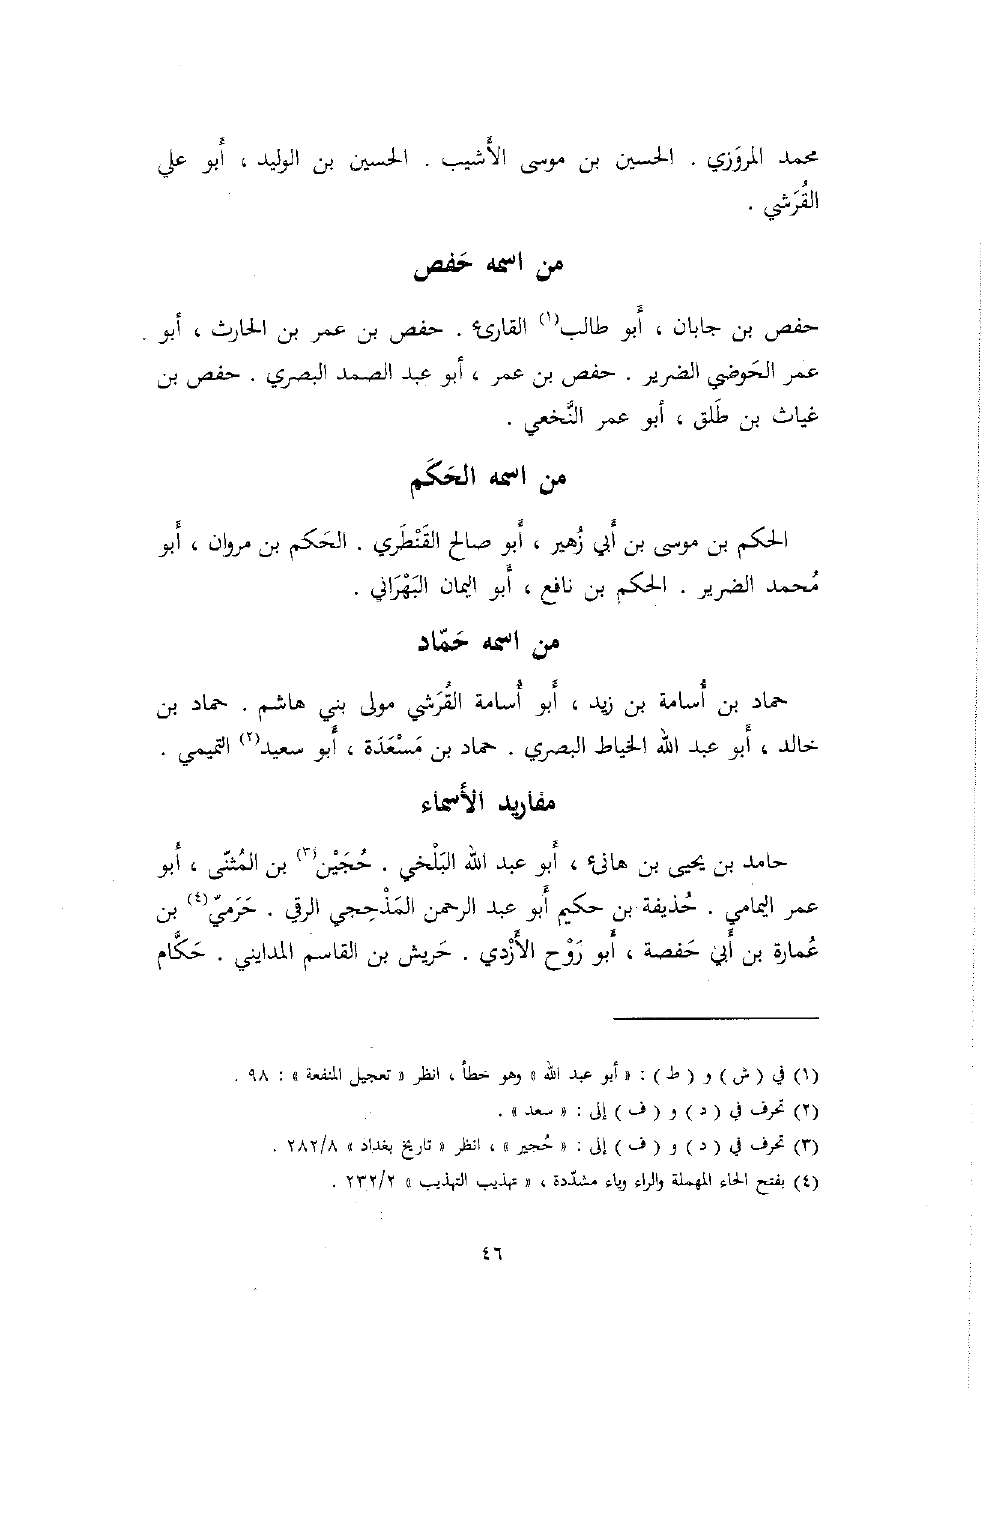 محمد المروَزي . الحسين بن موسى الأَشيب . الحسين بن الوليد ، أَبو علي
القُرَشي .
من اسمه حَفص
حفص بن جابان ، أَبو طالب(١) القارئ . حفص بن عمر بن الحارث ، أبو
عمر الحَوضي الضرير . حفص بن عمر ، أبو عبد الصمد البصري . حفص بن
غياث بن طَلق ، أبو عمر النَّخعي .
من اسمه الحَكَم
الحكم بن موسى بن أَبي زُهير ، أَبو صالح القَنْطَري . الحَكم بن مروان ، أَبو
مُحمد الضرير . الحكم بن نافع ، أَبو اليمان البَهْرَاني .
من اسمه حَمّاد
حماد بن أُسامة بن زيد ، أَبو أُسامة القُرَشي مولى بني هاشم . حماد بن
خالد ، أَبو عبد الله الخياط البصري . حماد بن مَسْعَدَة ، أَبو سعيد(٢) التميمي .
مفاريد الأَسماء
حامد بن يحيى بن هانئ ، أَبو عبد الله البَلْخي . حُجَيْن(٣) بن المُثنّى ، أَبو
عمر اليمامي . حُذيفة بن حكيم أَبو عبد الرحمن المَذْحِجي الرقي . حَرَميّ(٤) بن
عُمارة بن أَبي حَفصة ، أَبو رَوْح الأَزْدي . حَريش بن القاسم المدايني . حَكَّام
(١) في ( ش ) و ( ط ) : « أبو عبد الله » وهو خطأ ، انظر « تعجيل المنفعة » : ٩٨ .
(٢) تحرف في ( د ) و ( ف ) إلى : « سعد » .
(٣) تحرف في ( د ) و ( ف ) إلى : « حُجير » ، انظر « تاريخ بغداد » ٢٨٢/٨ .
(٤) بفتح الحاء المهملة والراء وياء مشدّدة ، « تهذيب التهذيب » ٢٣٢/٢ .
٤٦